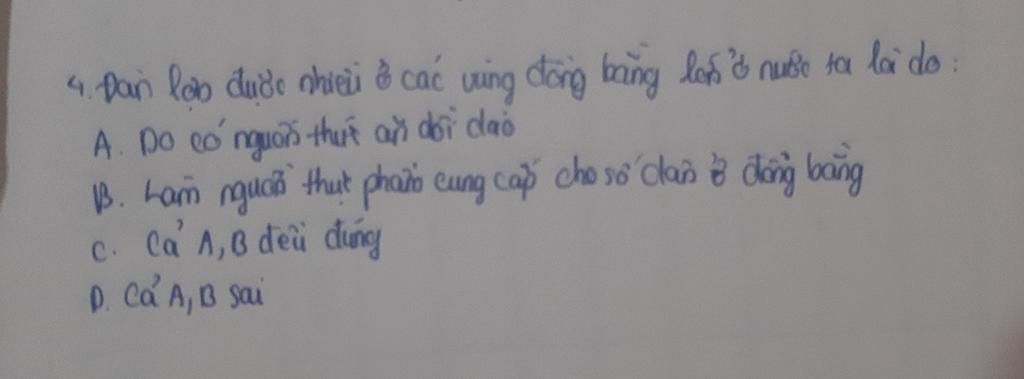 4. Đàn lợn được nhiều ở các vùng đồng bằng lớn ở nước ta là do:
A. Do có nguồn thức ăn dồi dào
B. Làm nguồn thực phẩm cung cấp cho số dân ở đồng bằng
C. Cả A, B đều đúng
D. Cả A, B sai